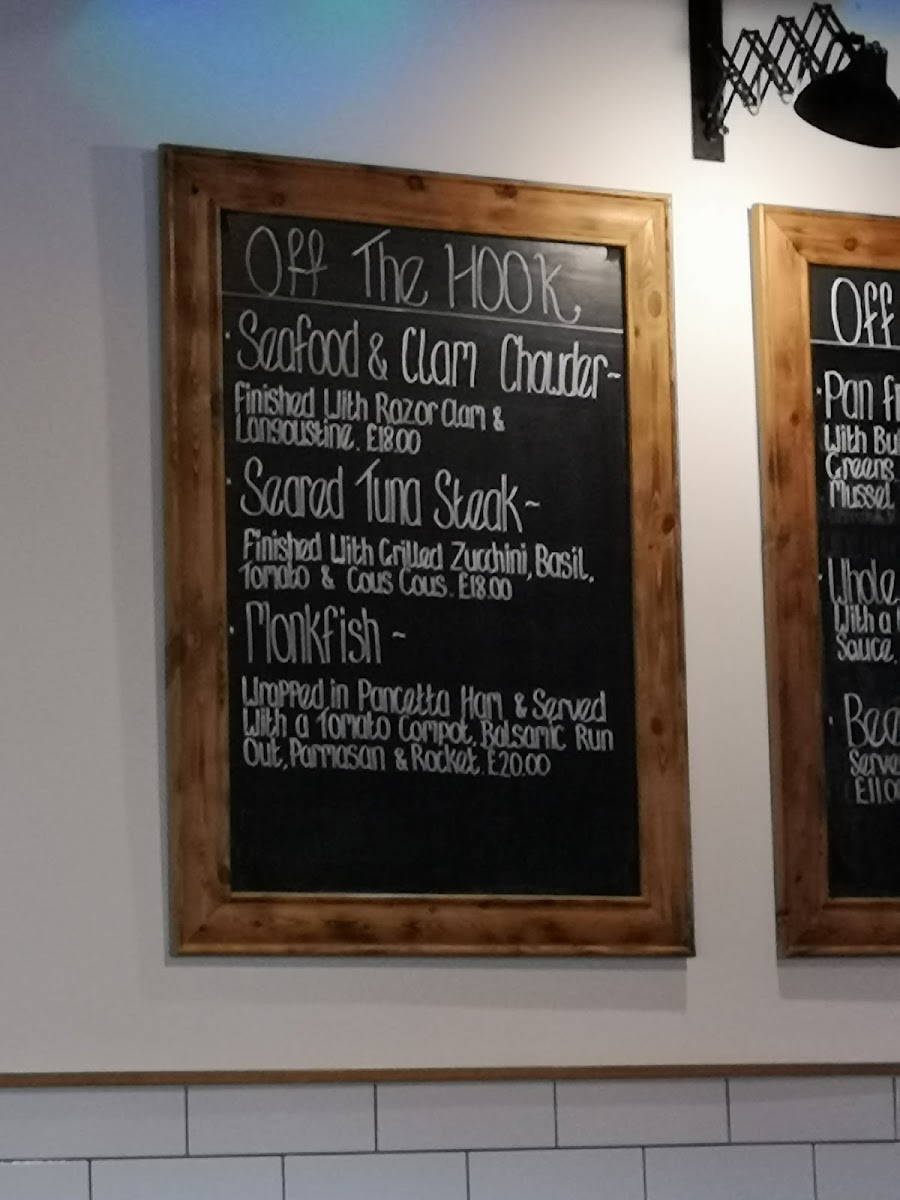 Off The Hook
· Seafood & Clam Chouder~
Finished With Razor Clam &
Langoustine. £18.00
· Seared Tuna Steak~
Finished With Grilled Zucchini, Basil,
Tomato & Cous Cous. £18.00
· Monkfish ~
Wrapped in Pancetta Ham & Served
With a Tomato Compot, Balsamic Run
Out, Parmasan & Rocket. £20.00
Off
· Pan
With
Greens
Mussel
· Whole
With a
Sauce
£11.0